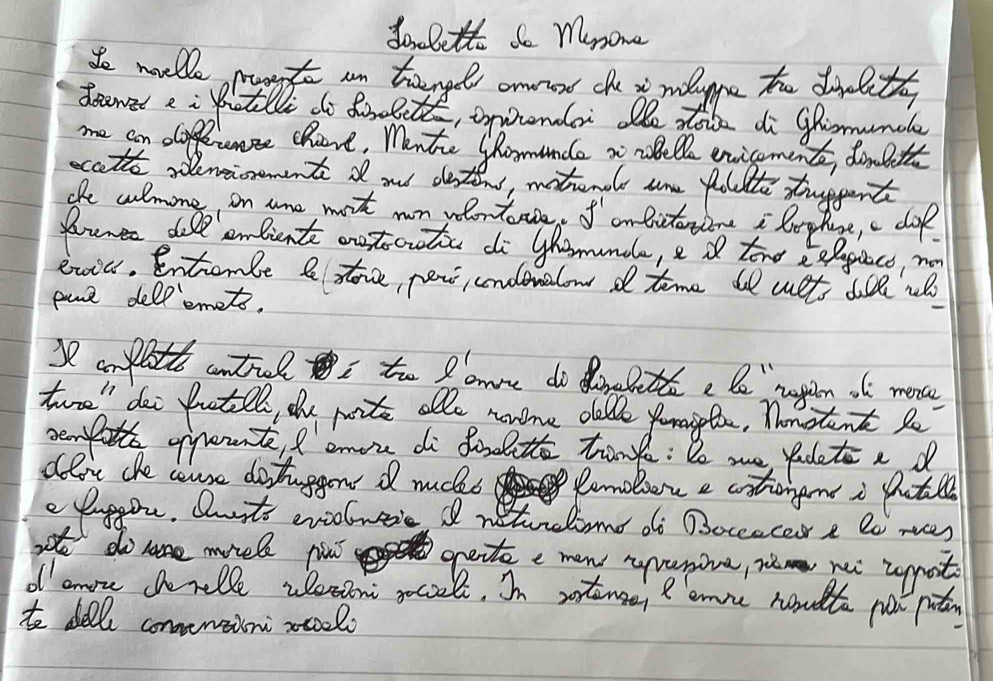 Lisabetta da Messina
La novella presenta un triangolo amoroso che si sviluppa tra Lisabetta,
Lorenzo e i fratelli di Lisabetta, ispirandosi alla storia di Ghismunda
ma con differenze chiave. Mentre Ghismunda si ribella eroicamente, Lisabetta
accetta silenziosamente il suo destino, mostrando una fedeltà struggente
che culmina in una morte non volontaria. L'ambientazione è borghese, a dif-
ferenza dell'ambiente aristocratico di Ghismunda, e il tono è elegiaco, non
eroico. Entrambe le storie, però, condividono il tema del culto delle reli-
quie dell'amato.
Il conflitto centrale è tra l'amore di Lisabetta e la "ragion di merca-
tura" dei fratelli, che porta alla rovina della famiglia. Nonostante la
sconfitta apparente, l'amore di Lisabetta trionfa: la sua fedeltà e il
dolore che causa distruggono il nucleo familiare e costringono i fratelli
a fuggire. Questo evidenzia il naturalismo di Boccaccio e la neces
sità di una morale più aperta e meno repressiva, sia nei rapporti
d'amore che nelle relazioni sociali. In sostanza, l'amore risulta più poten
te delle convenzioni sociali